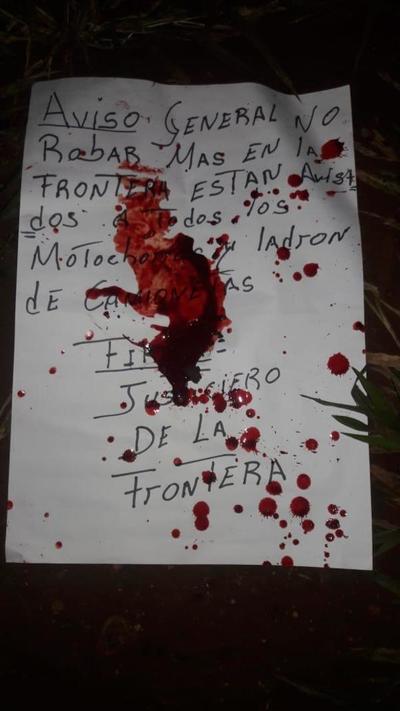 AVISO GENERAL NO
ROBAR MAS EN la
FRONTERA ESTAN AVISA
dos A Todos los
Motochorros y ladron
dE CAMIONETAS
FIRMA=
JUSTICIERO
DE LA
FRONTERA